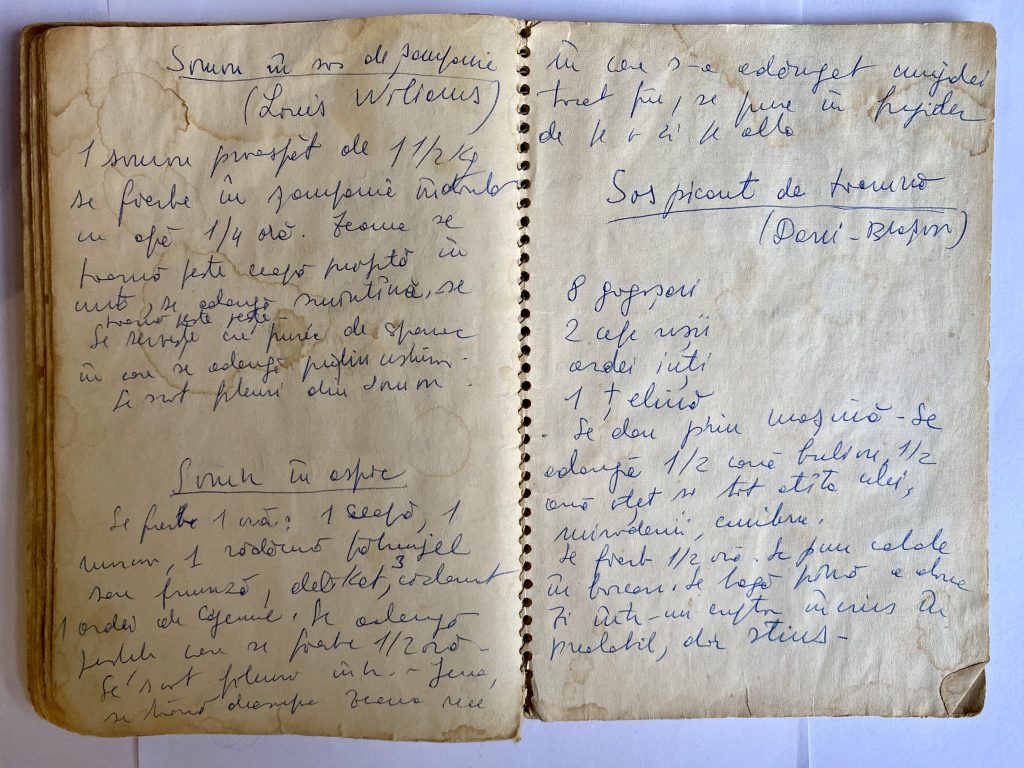 Somon în sos de șampanie
(Louis Wiliams)
1 somon proaspăt de 1 1/2 Kg
se fierbe în șampanie îndoulo
cu apă 1/4 oră. Zeama se
toarnă peste ceapă prăjită în
unt, se adaugă smîntînă, se
toarnă peste pește
Se servește cu piure de spanac
în care se adaugă puțin usturoi.
Se scot pleuri din somon.
Somn în aspic
Se fierb 1 oră: 1 ceapă, 1
morcov, 1 rădăcină pătrunjel
sau frunză, 3
1 ardei de Cayenne. Se adaugă
peștele care se fierbe 1/2 oră -
Se scot în Jena,
se toarnă deasupra zeama rece
în care s-a adăugat mujdei
tocat fin, se pune în frigider
de pe o zi pe alta
Sos picant de toamnă
(Dani - Brașov)
8 gogoșari
2 cepe roșii
ardei iuți
1 țelină
Se dau prin mașină - Se
adaugă 1/2 cană bulion, 1/2
cană oțet și tot atîta ulei,
mirodenii, cimbru.
Se fierb 1/2 oră. Se pun calde
în borcan. Se bagă pînă a doua
zi într-un cuptor încins în
prealabil, dar stins -